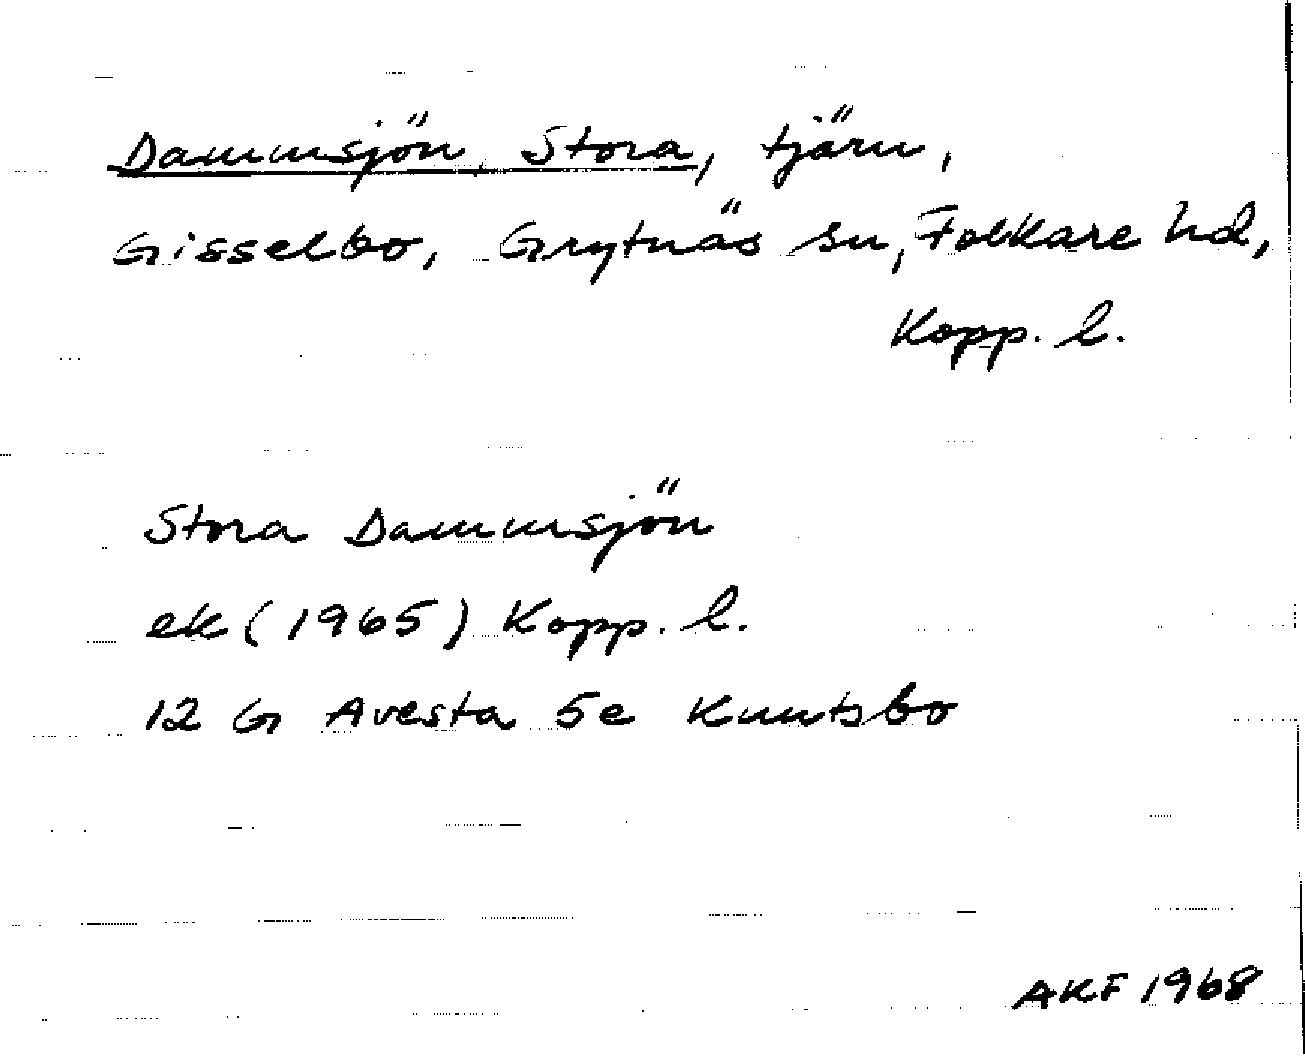 Dammsjön, Stora, tjärn,
Gisselbo, Grytnäs sn, Folkare hd,
Kopp. l.
Stora Dammsjön
ek (1965) Kopp. l.
12 G Avesta 5e Knutsbo
AKF 1968